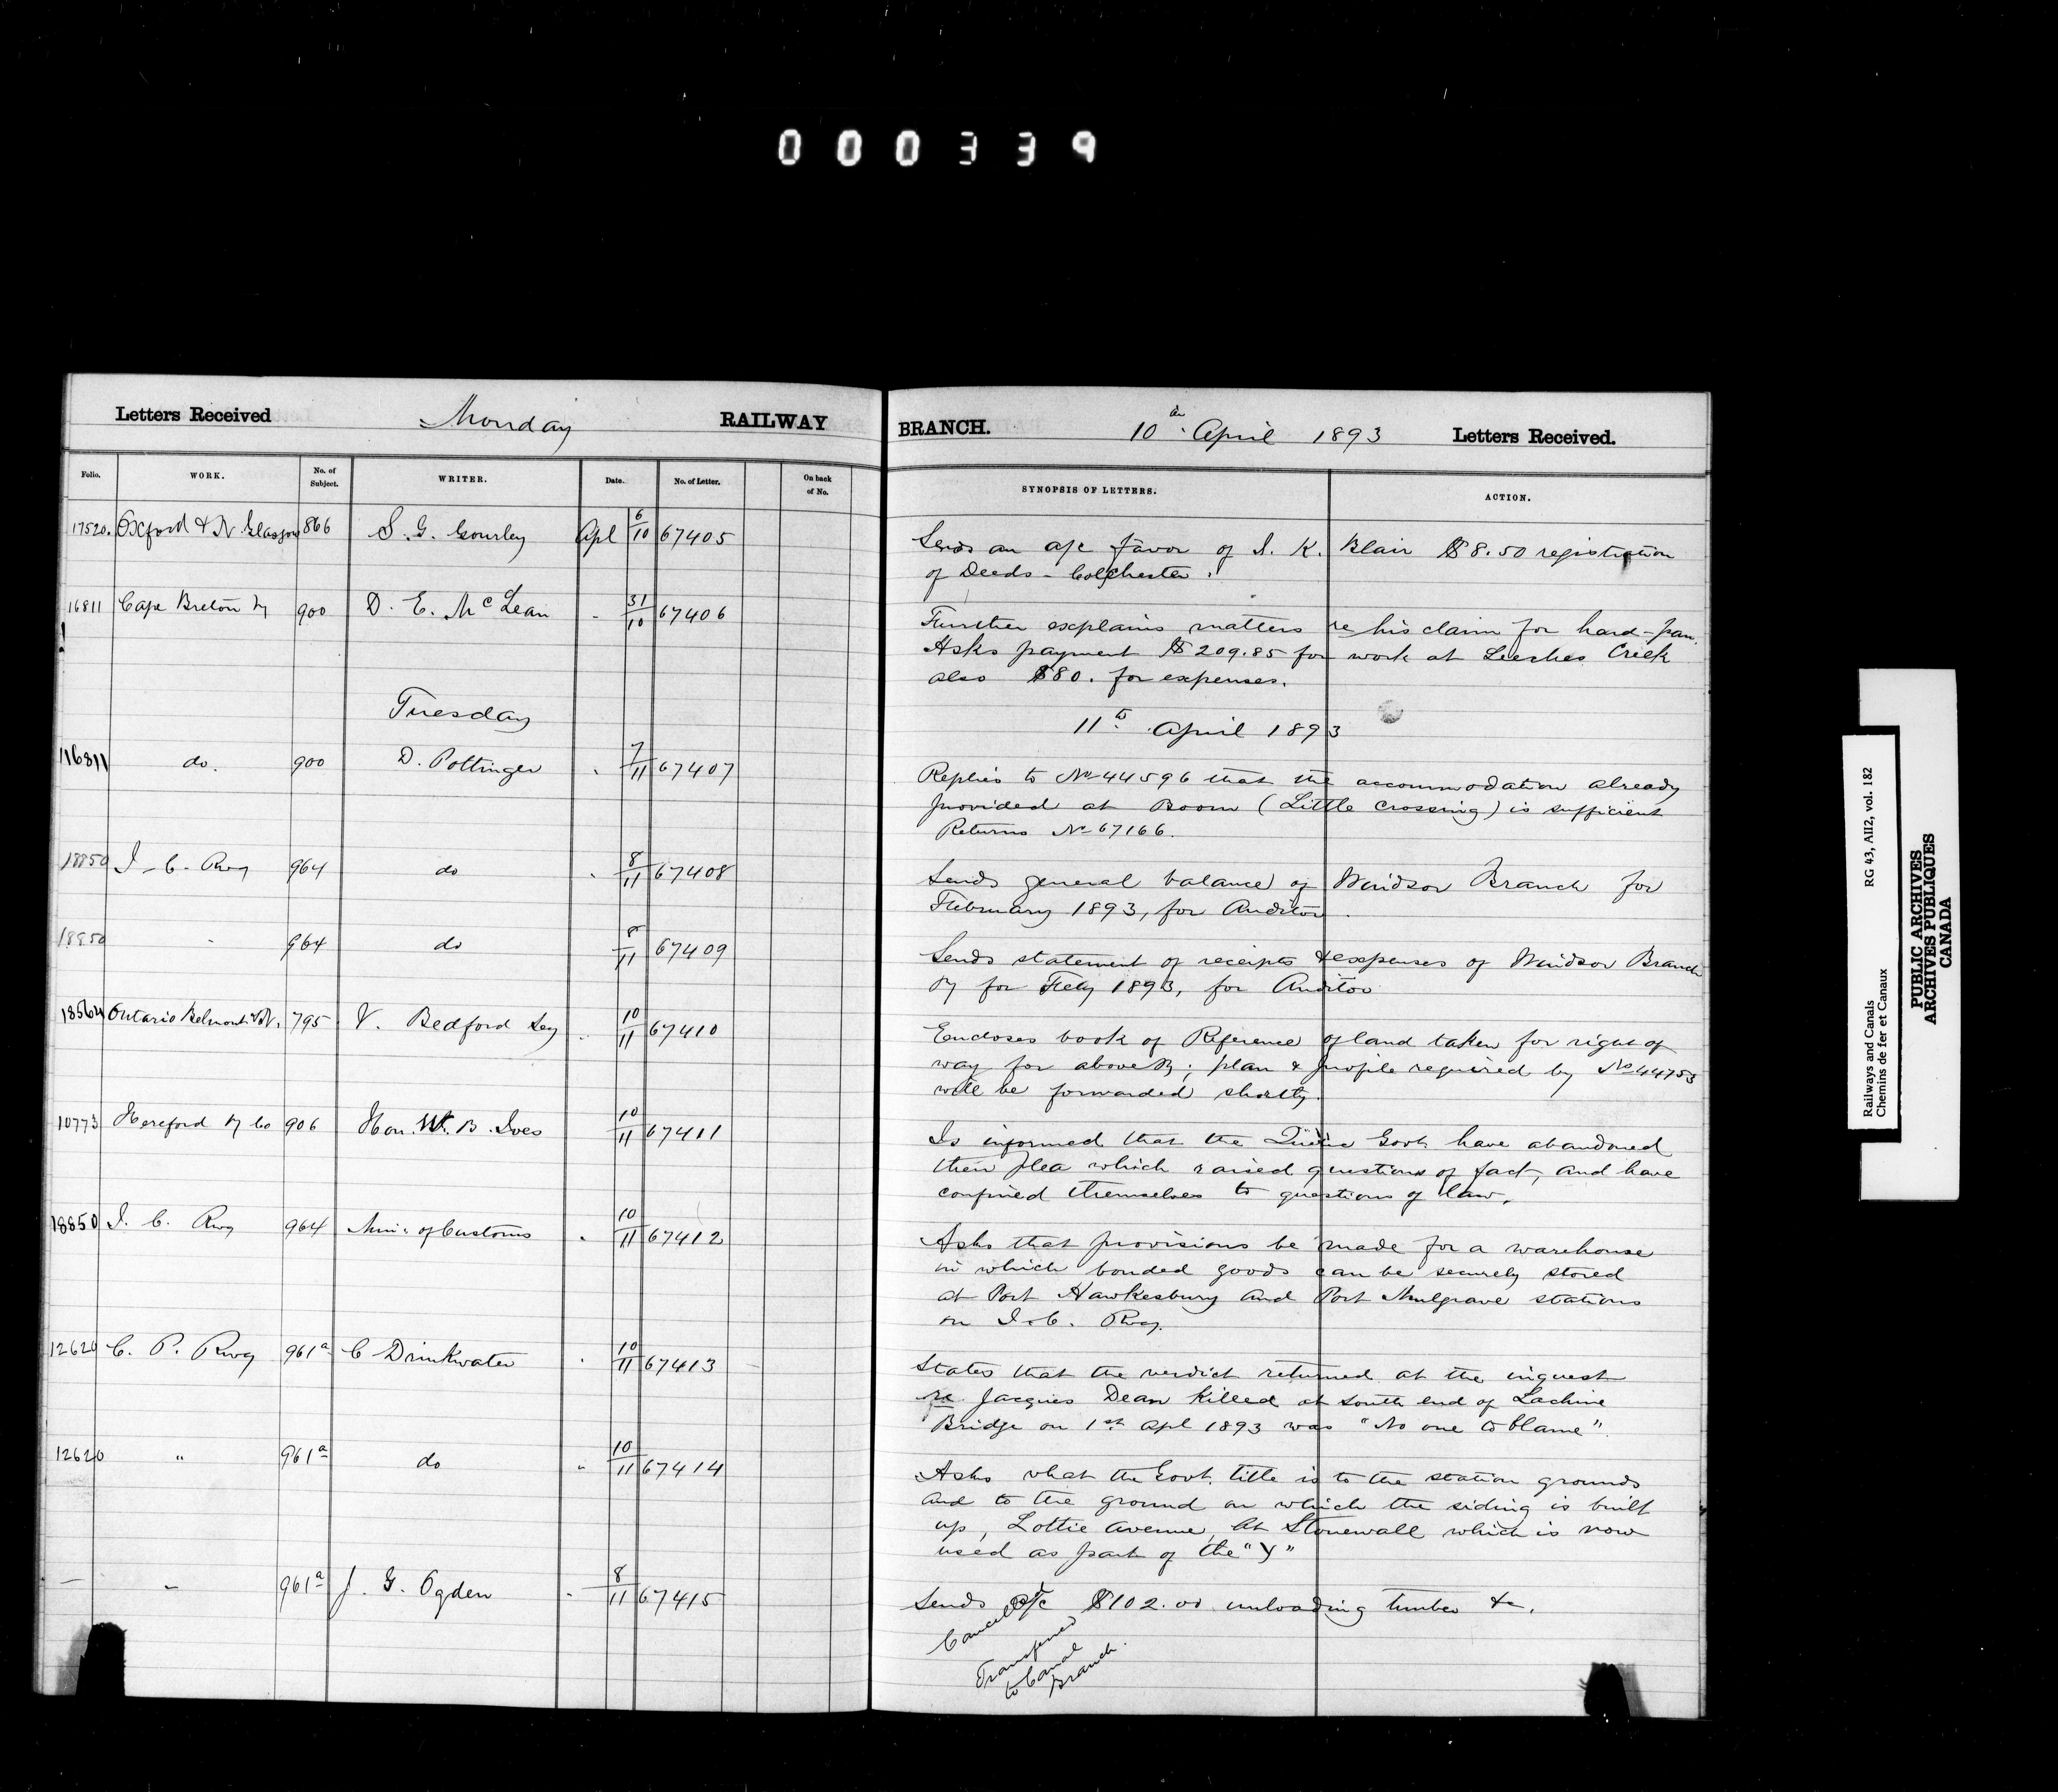 000339
Letters Received Monday RAILWAY BRANCH. 10th April 1893 Letters Received.
Folio. WORK. No. of Subject. WRITER. Date. No. of Letter. On back of No. SYNOPSIS OF LETTERS. ACTION.
17520. Oxford & N. Glasgow 866 S. G. Gourley Apl 6/10 67405
Sends an a/c favor of S. K. Blair $8.50 registration
of Deeds - Colchester.
16811 Cape Breton Ry 900 D. E. McLean " 31/10 67406
Further explains matters re his claim for hard-pan.
Asks payment $209.85 for work at Leeches Creek
also $80. for expenses.
Tuesday 11th April 1893
16811 do. 900 D. Pottinger " 7/11 67407
Replies to No 44596 that the accommodation already
provided at Boom (Little Crossing) is sufficient
Returns No 67166.
18850 I. C. Rwy 964 do " 8/11 67408
Sends general balance of Windsor Branch for
February 1893, for Auditor.
18850 " 964 do 8/11 67409
Sends statement of receipts & expenses of Windsor Branch
Ry for Feby 1893, for Auditor
18564 Ontario Belmont & N. 795 V. Bedford Secy " 10/11 67410
Encloses book of Reference of land taken for right of
way for above Ry; plan & profile required by No 44753
will be forwarded shortly.
10773 Hereford Ry Co 906 Hon. W. B. Ives 10/11 67411
Is informed that the Govt have abandoned
their plea which raised questions of fact, and have
confined themselves to questions of law.
18850 I. C. Rwy 964 Minr of Customs " 10/11 67412
Asks that provisions be made for a warehouse
in which bonded goods can be securely stored
at Port Hawkesbury and Port Mulgrave stations
on I.C. Rwy.
12620 C. P. Rwy 961a C Drinkwater " 10/11 67413
States that the verdict returned at the inquest
re Jacques Dean killed at south end of Lachine
Bridge on 1st Apl 1893 was "No one to blame".
12620 " 961a do " 10/11 67414
Asks what the Govt. title is to the station grounds
and to the ground on which the siding is built
up, Lottie Avenue, at Stonewall which is now
used as part of the "Y"
— " 961a J. G. Ogden " 8/11 67415
Sends a/c $102.00 unloading timber &c.
Cancelled
Transferred
to Canal
Branch.
Railways and Canals RG 43, AII2, vol. 182
Chemins de fer et Canaux
PUBLIC ARCHIVES
ARCHIVES PUBLIQUES
CANADA